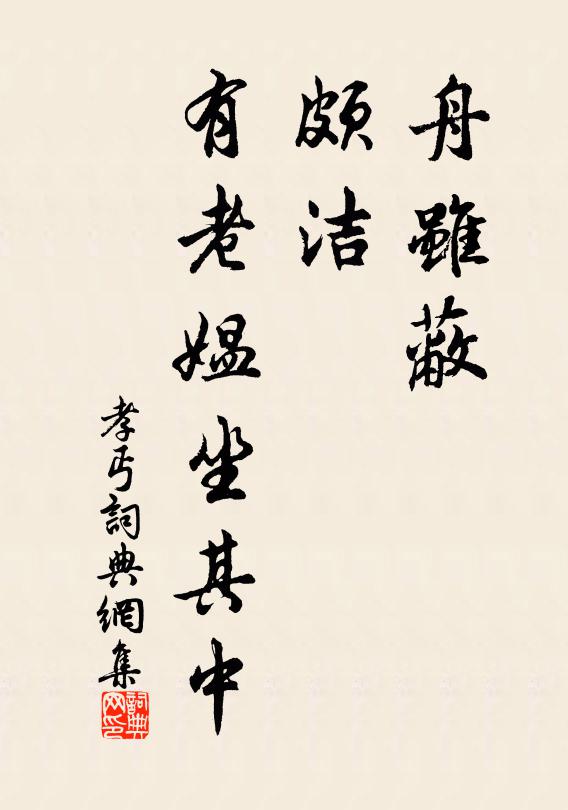 舟雖蔽
頗洁
有老媼坐其中
孝丐詞典網集
詞典
网印